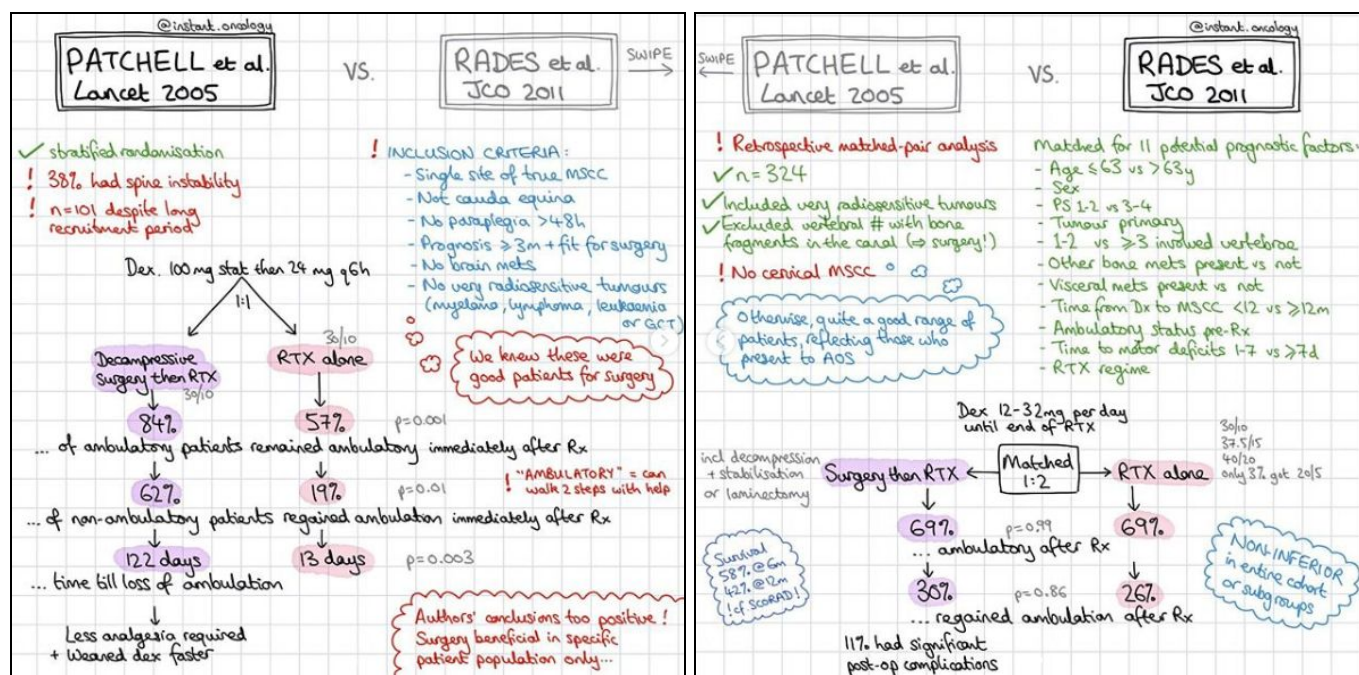 @instant.oncology
PATCHELL et al.
Lancet 2005
VS.
RADES et al.
JCO 2011
SWIPE
✓ stratified randomisation
! 38% had spine instability
! n=101 despite long
recruitment period
! INCLUSION CRITERIA:
- Single site of true MSCC
- Not cauda equina
- No paraplegia >48h
- Prognosis ≥3m + fit for surgery
- No brain mets
- No very radiosensitive tumours
(myeloma, lymphoma, leukaemia
or GCT)
We knew these were
good patients for surgery
Dex. 100mg stat then 24 mg q6h
1:1
Decompressive
surgery then RTX
30/10
30/10
RTX alone
84%
57%
p=0.001
... of ambulatory patients remained ambulatory immediately after Rx
62%
19%
p=0.01
! "AMBULATORY" = can
walk 2 steps with help
... of non-ambulatory patients regained ambulation immediately after Rx
122 days
13 days
p=0.003
... time till loss of ambulation
Less analgesia required
+ weaned dex faster
Authors' conclusions too positive!
Surgery beneficial in specific
patient population only...
@instant.oncology
SWIPE
PATCHELL et al.
Lancet 2005
VS.
RADES et al.
JCO 2011
! Retrospective matched-pair analysis
✓ n=324
✓ Included very radiosensitive tumours
✓ Excluded vertebral # with bone
fragments in the canal (⇒ surgery!)
! No cervical MSCC
Otherwise, quite a good range of
patients, reflecting those who
present to AOS
Matched for 11 potential prognostic factors:
- Age ≤63 vs >63y
- Sex
- PS 1-2 vs 3-4
- Tumour primary
- 1-2 vs ≥3 involved vertebrae
- Other bone mets present vs not
- Visceral mets present vs not
- Time from Dx to MSCC <12 vs ≥12m
- Ambulatory status pre-Rx
- Time to motor deficits 1-7 vs ≥7d
- RTX regime
Dex 12-32mg per day
until end of RTX
incl decompression
+ stabilisation
or laminectomy
Surgery then RTX
Matched
1:2
RTX alone
30/10
37.5/15
40/20
only 3% got 20/5
69%
p=0.99
69%
... ambulatory after Rx
30%
p=0.86
26%
... regained ambulation after Rx
11% had significant
post-op complications
Survival
58% @6m
42% @12m
! cf. SCORAD!
NON-INFERIOR
in entire cohort
or subgroups